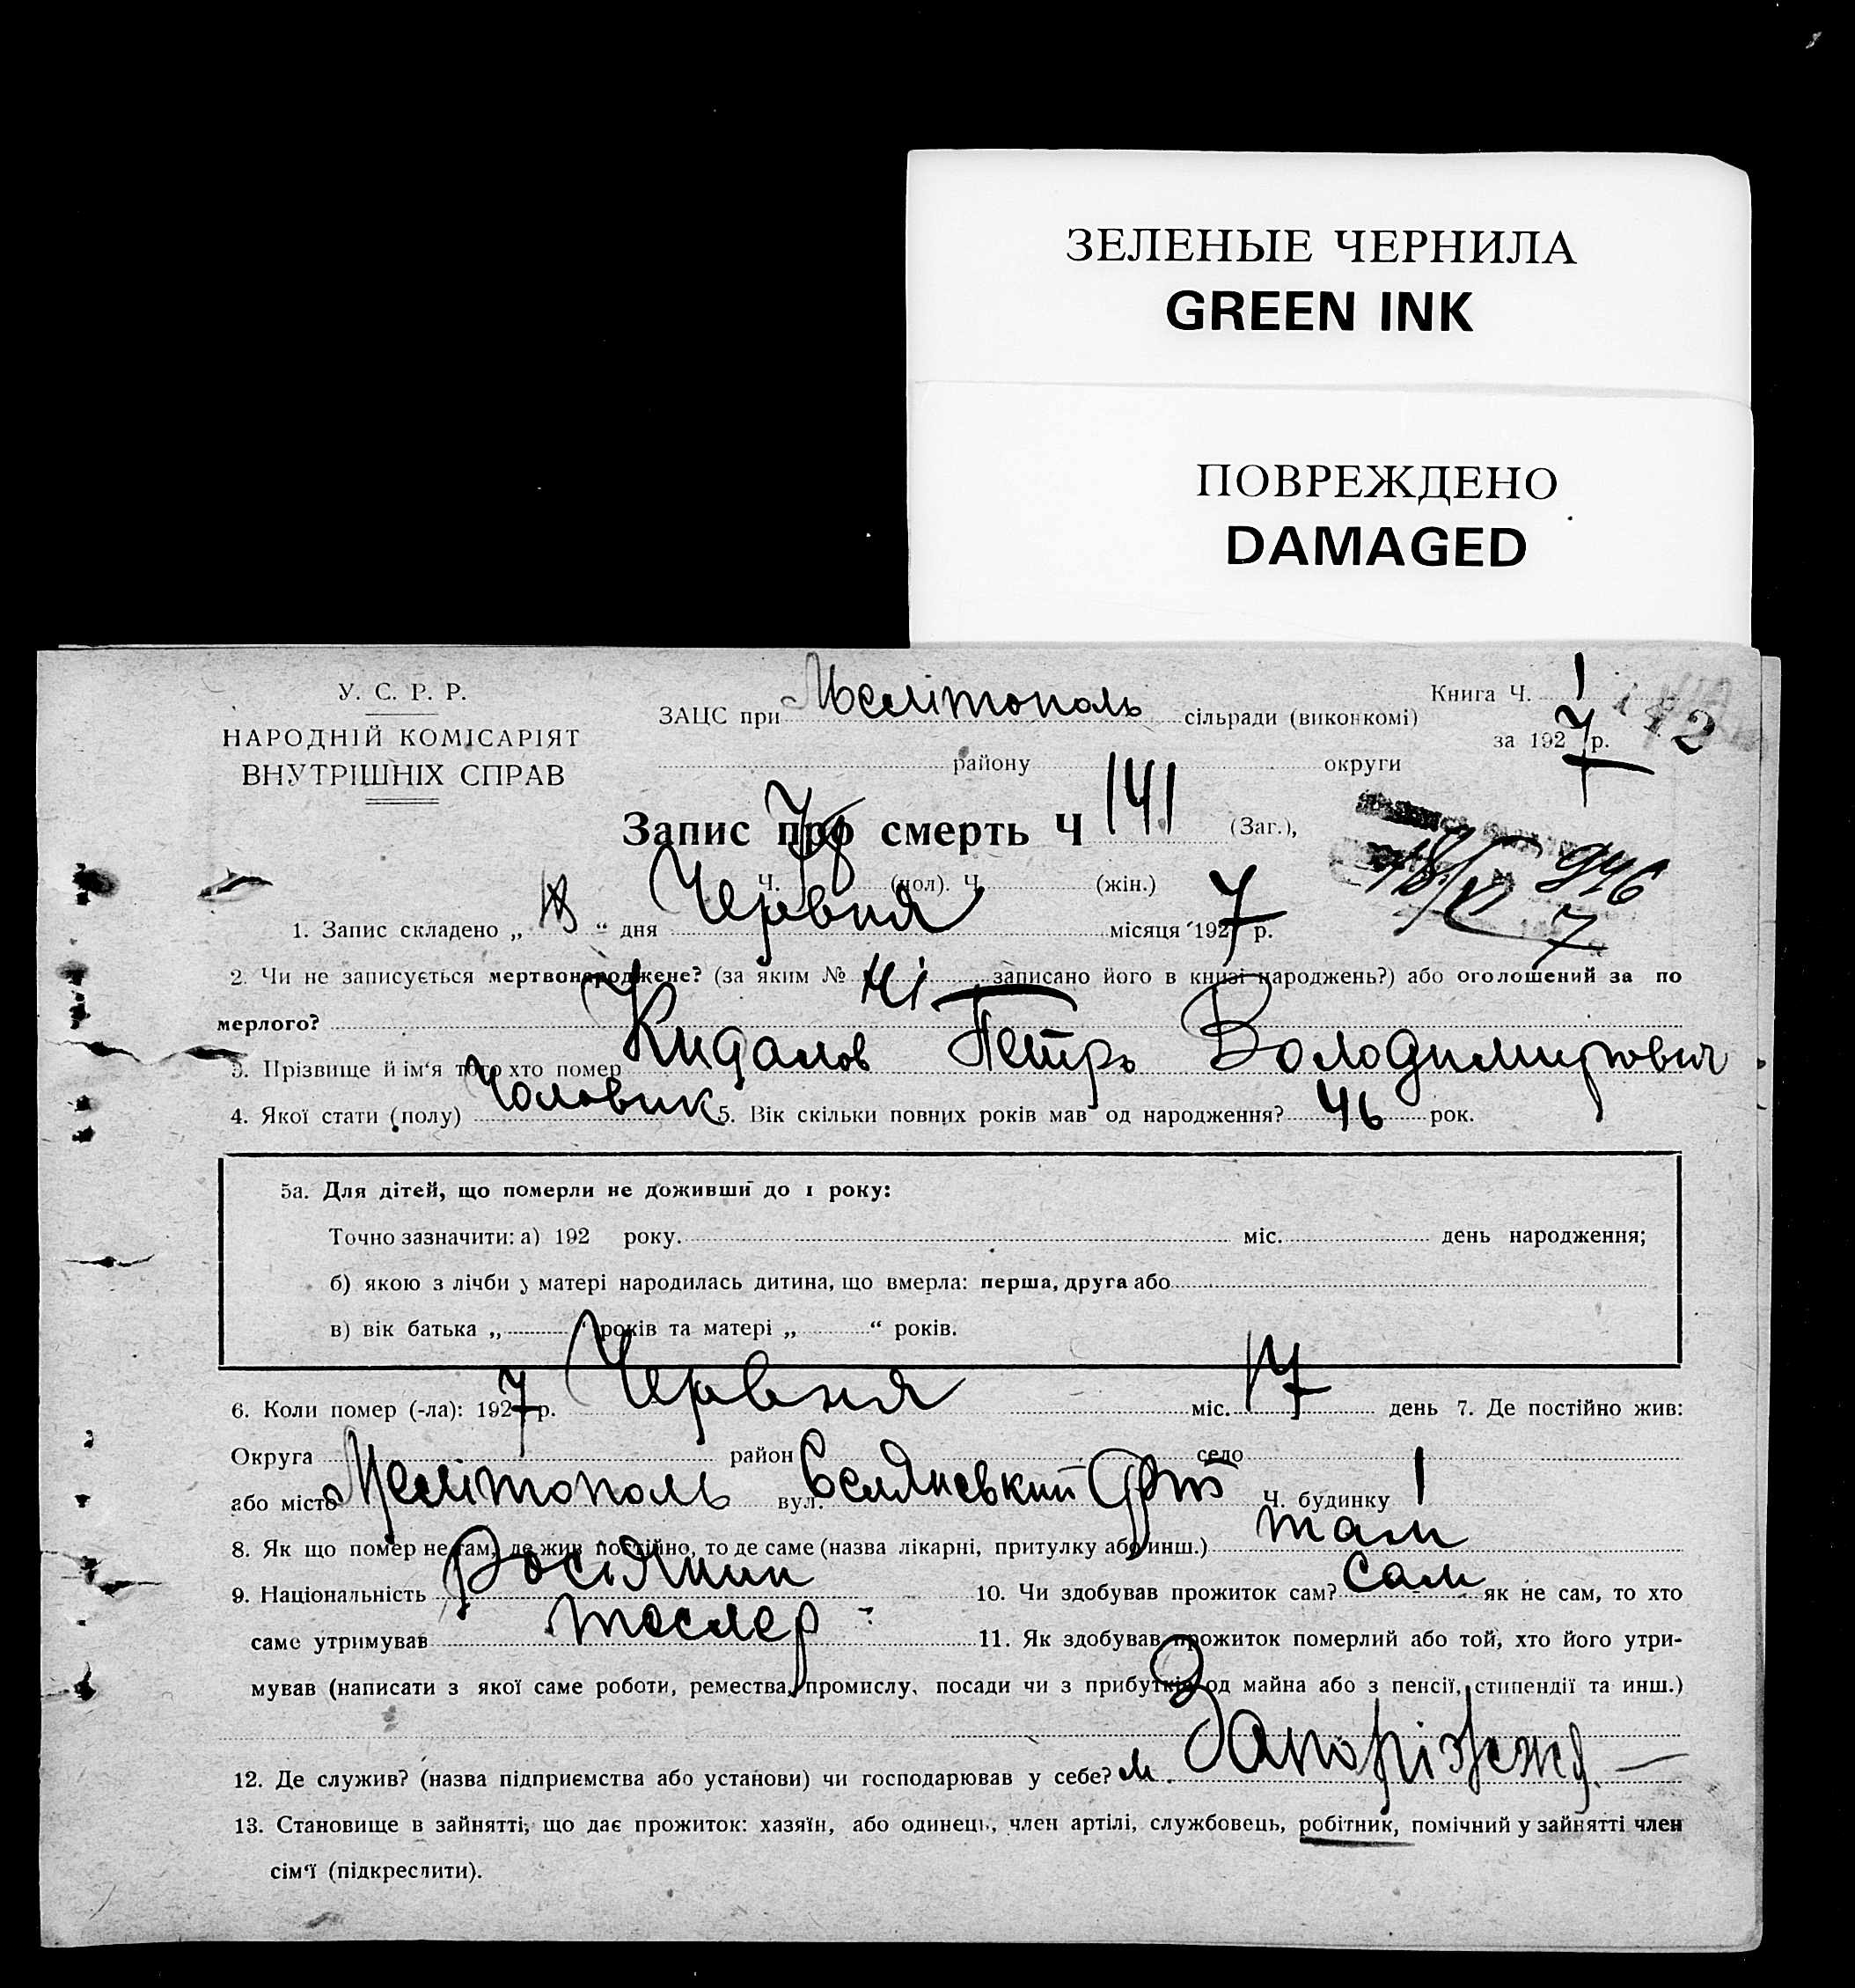 ЗЕЛЕНЫЕ ЧЕРНИЛА
GREEN INK
ПОВРЕЖДЕНО
DAMAGED
У. С. Р. Р.
НАРОДНІЙ КОМІСАРІЯТ
ВНУТРІШНІХ СПРАВ
Книга Ч. 1
за 1927 р.
142
ЗАЦС при Мелітополь сільради (виконкомі)
району округи
Запис про смерть Ч 141 (Заг.),
Ч. 78 (чол). Ч. (жін.)
946
7
1. Запис складено „ 18 “ дня Червня місяця 1927 р.
2. Чи не записується мертвонароджене? (за яким № ні записано його в книзі народжень?) або оголошений за по
мерлого?
3. Прізвище й ім‘я того хто помер Кидалов Петро Володимирович
4. Якої стати (полу) Чоловик 5. Вік скільки повних років мав од народження? 46 рок.
5а. Для дітей, що померли не доживши до 1 року:
Точно зазначити: а) 192 року. міс. день народження;
б) якою з лічби у матері народилась дитина, що вмерла: перша, друга або
в) вік батька „ “ років та матері „ “ років.
6. Коли помер (-ла): 1927 р. Червня міс. 17 день 7. Де постійно жив:
Округа район село
або місто Мелітополь вул. Селянський Ч. будинку 1
8. Як що помер не там, де жив постійно, то де саме (назва лікарні, притулку або инш.) там
9. Національність Росіянин 10. Чи здобував прожиток сам? Сам як не сам, то хто
саме утримував тесляр 11. Як здобував прожиток померлий або той, хто його утри-
мував (написати з якої саме роботи, ремества, промислу, посади чи з прибутків од майна або з пенсії, стипендії та инш.)
12. Де служив? (назва підприємства або установи) чи господарював у себе? м. Запоріжжя.
13. Становище в зайнятті, що дає прожиток: хазяїн, або одинець, член артілі, службовець, робітник, помічний у зайнятті член
сім‘ї (підкреслити).